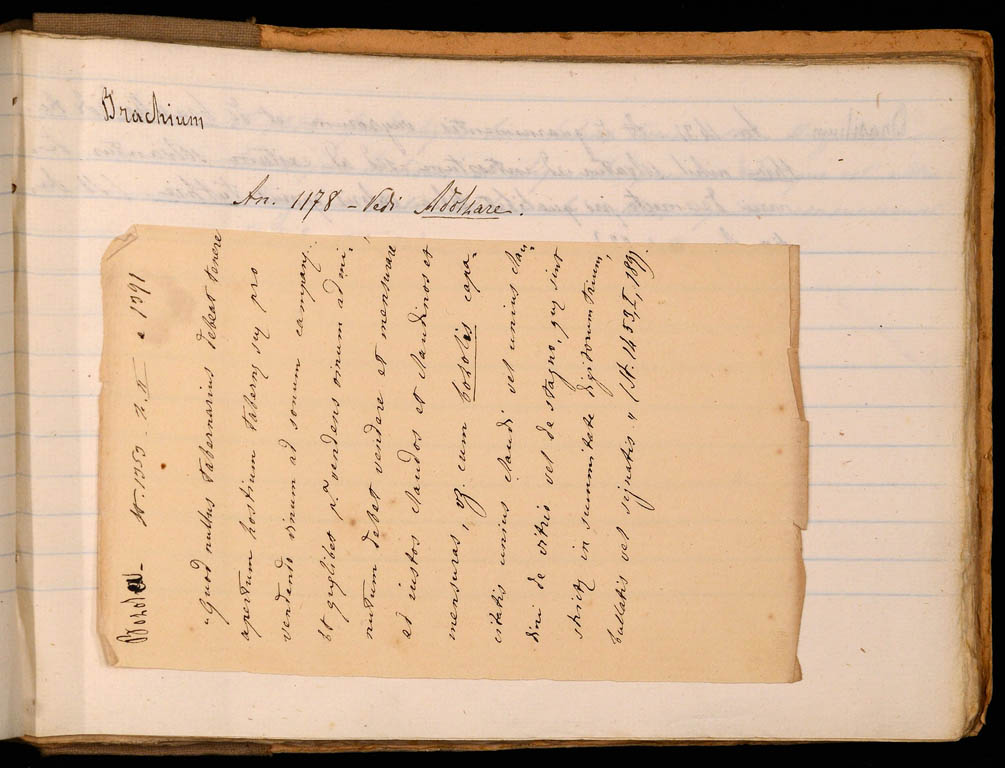 Brachium
An. 1178 - Vedi Adottare.
Bozola - St. 1353 - L. II c 1391
"Quod nullus tabernarius debeat tenere
apertum hostium tabernę suę pro
vendendo vinum ad sonum campanę.
Et quilibet pr. vendens vinum ad mi-
nutum debeat vendere et mensurare
ad iustos staudos et staudinos et
mensuras, vz. cum bozolis capa-
citatis unius staudi vel unius stau-
dini de vitrio vel de stagno, quę sint
strictę in summitate digitorum trium,
bullatis vel signatis." (St. 1453, I, 189).